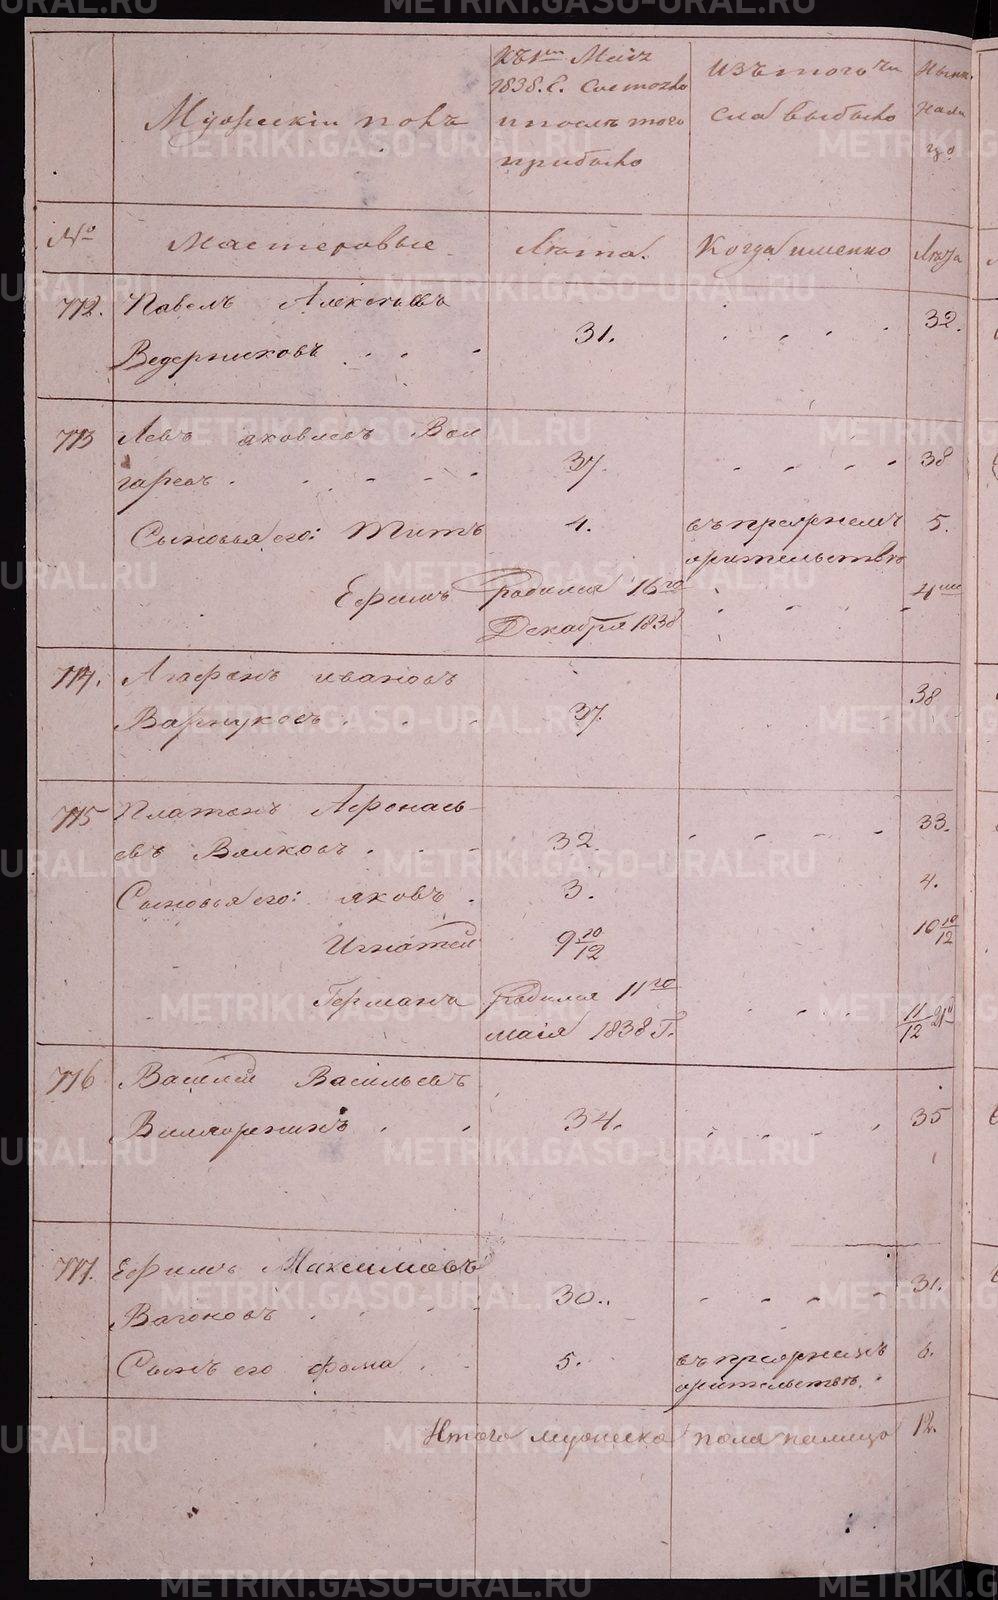 Мужескій полъ
Къ 1му Маія
1838. Г. Состояло
и послѣ того
прибыло
Изъ того чи
сла выбыло
Нынѣ
нали
цо
№
Мастеровые
Лѣта.
Когда именно
Лѣта
712. Павелъ Алексѣевъ 32.
Ведерниковъ 31.
713 Левъ яковлевъ Вол
гаревъ 37. 38
Сыновья его: Титъ 4. 5.
Ефимъ родился 16го
Декабря 1838
714. Агафонъ ивановъ 38
Варнуковъ 37.
715 Платонъ Афонась 33.
евъ Волковъ 32.
Сыновья его: яковъ 3. 4.
Игнатей 9 10/12 10 10/12
Германъ родился 11го
маія 1838 Г. 11/12
716 Василей Васильевъ
34. 35
717. Ефимъ Максимовъ 31.
Вагоновъ 30.
Сынъ его фома 5. 6.
Итого мужеска пола налицо 12.
METRIKI.GASO-URAL.RU